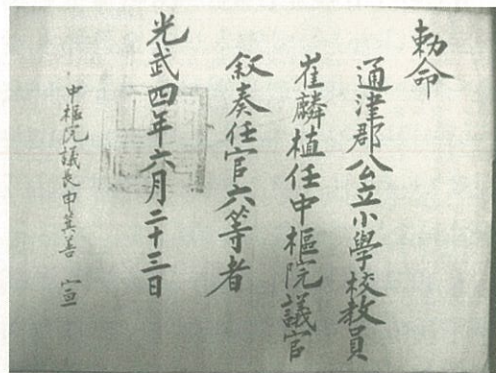 勅命
通津郡公立小學校教員
崔麟植任中樞院議官
敘奏任官六等者
光武四年六月二十三日
中樞院議長申箕善 宣